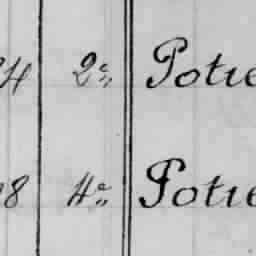 4 2e Potie
8 4e Potie